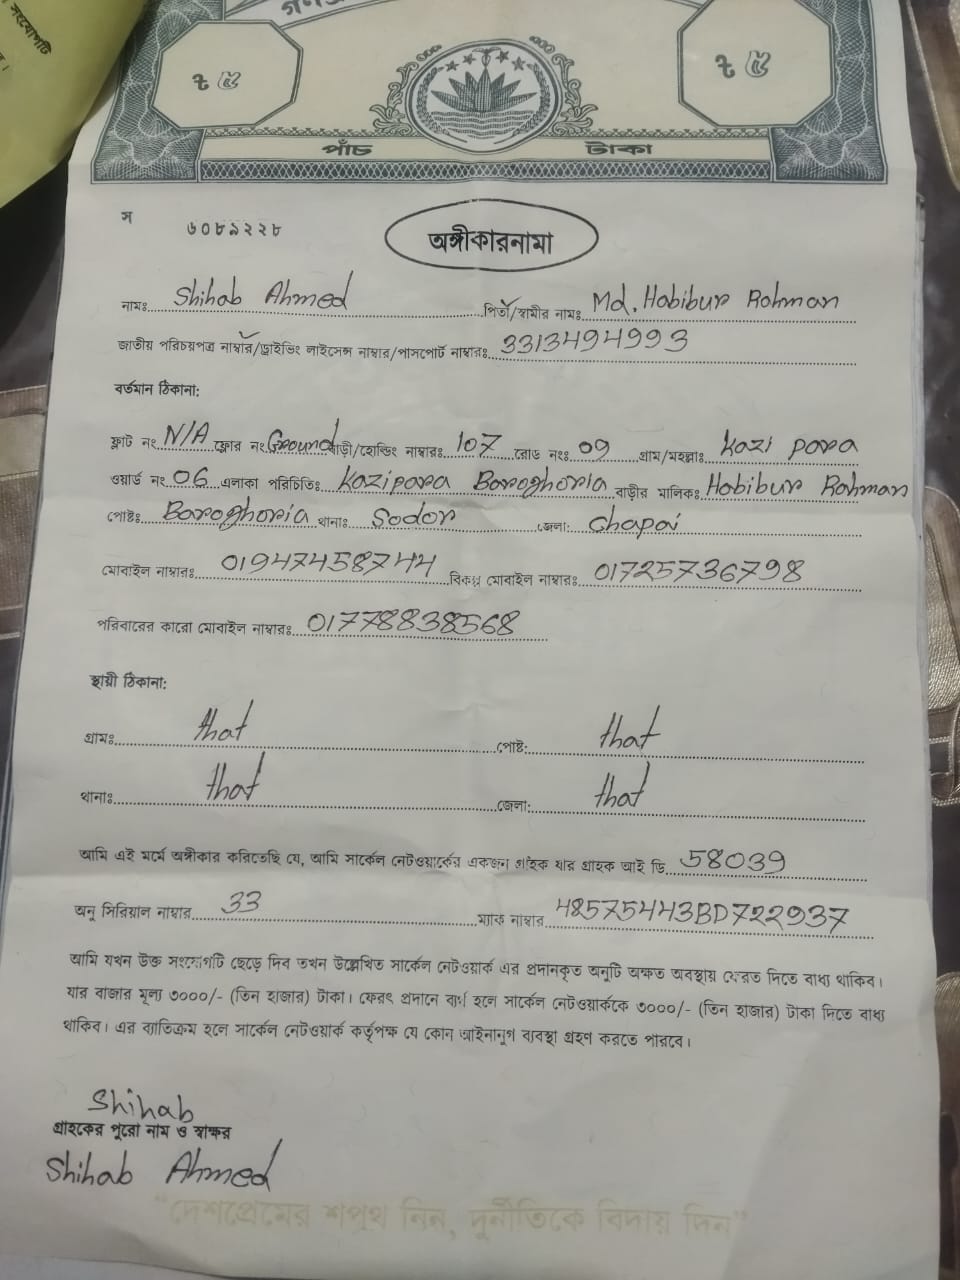 সংযোগটি
র ।
৳ ৫
৳ ৫
পাঁচ টাকা
স ৬০৮৯২২৮
অঙ্গীকারনামা
নামঃ Shihab Ahmed পিতা/স্বামীর নামঃ Md. Habibur Rahman
জাতীয় পরিচয়পত্র নাম্বার/ড্রাইভিং লাইসেন্স নাম্বার/পাসপোর্ট নাম্বারঃ 3313494993
বর্তমান ঠিকানা:
ফ্লাট নং N/A ফ্লোর নং Ground বাড়ী/হোল্ডিং নাম্বারঃ 107 রোড নংঃ 09 গ্রাম/মহল্লাঃ Kazi para
ওয়ার্ড নং 06 এলাকা পরিচিতিঃ Kazipara Baroghoria বাড়ীর মালিকঃ Habibur Rahman
পোষ্টঃ Baroghoria থানাঃ Sador জেলা: Chapai
মোবাইল নাম্বারঃ 01947458744 বিকল্প মোবাইল নাম্বারঃ 01725736798
পরিবারের কারো মোবাইল নাম্বারঃ 01778838568
স্থায়ী ঠিকানা:
গ্রামঃ that পোষ্ট: that
থানাঃ that জেলা: that
আমি এই মর্মে অঙ্গীকার করিতেছি যে, আমি সার্কেল নেটওয়ার্কের একজন গ্রাহক যার গ্রাহক আই ডি 58039
অনু সিরিয়াল নাম্বার 33 ম্যাক নাম্বার 48575443BD722937
আমি যখন উক্ত সংযোগটি ছেড়ে দিব তখন উল্লেখিত সার্কেল নেটওয়ার্ক এর প্রদানকৃত অনুটি অক্ষত অবস্থায় ফেরত দিতে বাধ্য থাকিব।
যার বাজার মূল্য ৩০০০/- (তিন হাজার) টাকা। ফেরৎ প্রদানে ব্যর্থ হলে সার্কেল নেটওয়ার্ককে ৩০০০/- (তিন হাজার) টাকা দিতে বাধ্য
থাকিব। এর ব্যতিক্রম হলে সার্কেল নেটওয়ার্ক কর্তৃপক্ষ যে কোন আইনানুগ ব্যবস্থা গ্রহণ করতে পারবে।
Shihab
গ্রাহকের পুরো নাম ও স্বাক্ষর
Shihab Ahmed
"দেশপ্রেমের শপথ নিন, দুর্নীতিকে বিদায় দিন"